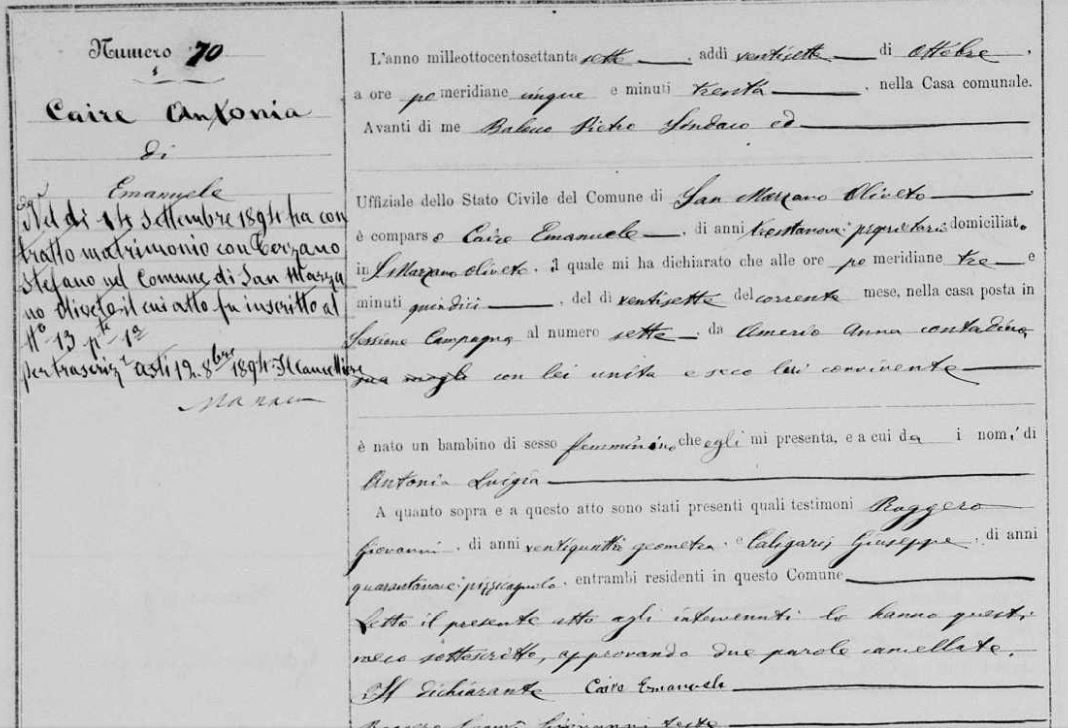 Numero 70
Caire Antonia
di
Emanuele
Nel di 14 Settembre 1894 ha con
tratto matrimonio con Terzano
Stefano nel Comune di San Marza
no Oliveto il cui atto fu inscritto al
N° 13 pte 1a
per trascrize Asti 12 8bre 1894 Il Cancelliere
L'anno milleottocentosettanta sette, addi ventisette di Ottobre,
a ore po meridiane cinque e minuti trenta, nella Casa comunale.
Avanti di me Pietro Sindaco ed
Uffiziale dello Stato Civile del Comune di San Marzano Oliveto
è comparso Caire Emanuele, di anni trentanove proprietario domiciliato
in S. Marzano Oliveto, il quale mi ha dichiarato che alle ore po meridiane tre e
minuti quindici, del dì ventisette del corrente mese, nella casa posta in
Sessione Campagna al numero sette, da Amerio Anna contadina
sua moglie con lei unita e seco lui convivente
è nato un bambino di sesso femminino che egli mi presenta, e a cui da i nomi di
Antonia Luigia
A quanto sopra e a questo atto sono stati presenti quali testimoni Roggero
Giovanni, di anni ventiquattro geometra, e Caligaris Giuseppe, di anni
quarantanove pizzicagnolo, entrambi residenti in questo Comune
Letto il presente atto agli intervenuti lo hanno questi
meco sottoscritto, approvando due parole cancellate.
Il dichiarante Caire Emanuele
Giovanni teste